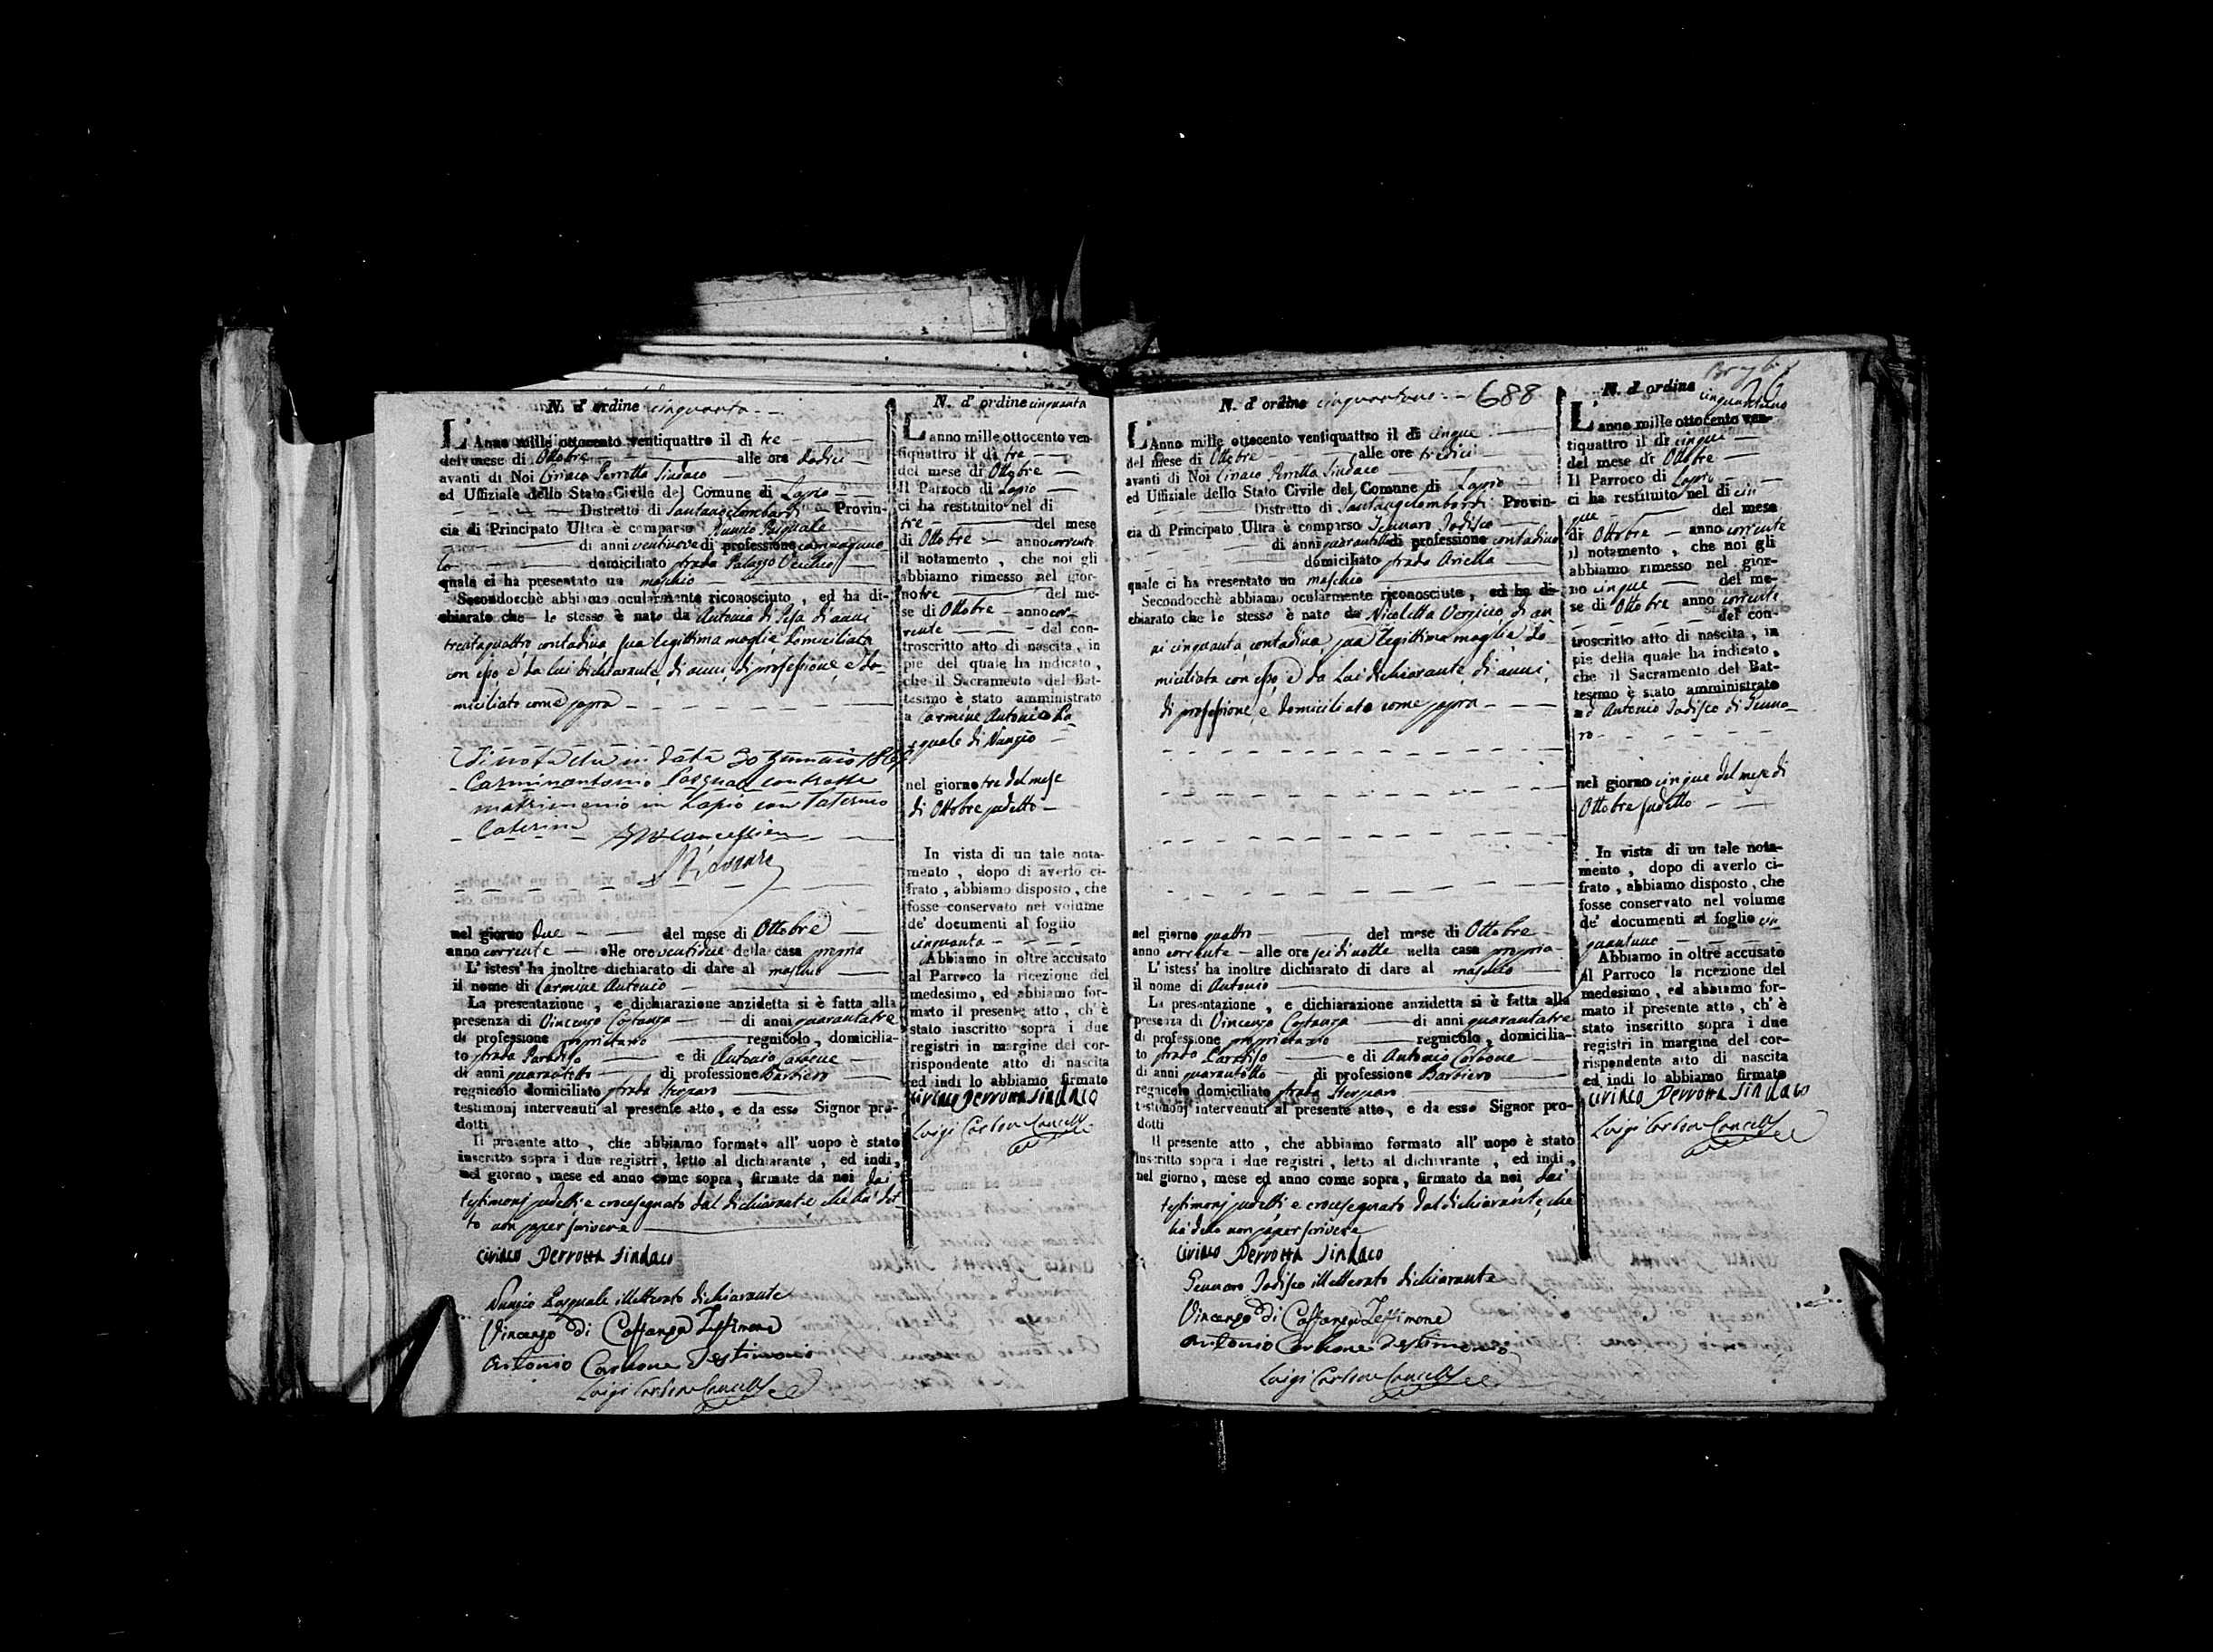 N. d' ordine cinquanta
L' Anno mille ottocento ventiquattro il dì tre
del mese di Ottobre alle ore dodici
avanti di Noi Ciriaco Perrotta Sindaco
ed Uffiziale dello Stato Civile del Comune di Lapio
Distretto di Santangelombardi Provin-
cia di Principato Ultra è comparso Nunzio Pasquale
di anni ventinove di professione
domiciliato strada Palazzo Vecchio
quale ci ha presentato un maschio
Secondocchè abbiamo ocularmente riconosciuto , ed ha di-
chiarato che lo stesso è nato da Antonia di di anni
trentaquattro contadina sua legittima moglie domiciliata
con esso e da lui dichiarante di anni, di professione, e do-
miciliato come sopra
Si nota che in data 30 Gennaio
Carminantonio Pasquale contrasse
matrimonio in Lapio con Paterno
Caterina
nel giorno due del mese di Ottobre
anno corrente alle ore ventidue della casa propria
L' istess' ha inoltre dichiarato di dare al maschio
il nome di Carmine Antonio
La presentazione , e dichiarazione anzidetta si è fatta alla
presenza di Vincenzo Costanza di anni quarantatre
di professione proprietario regnicolo , domicilia-
to strada Paradiso e di Antonio Carbone
di anni quarantotto di professione Barbiero
regnicolo domiciliato strada
testimonj intervenuti al presente atto , e da esso Signor pro-
dotti
Il presente atto , che abbiamo formato all' uopo è stato
inscritto sopra i due registri , letto al dichiarante , ed indi,
nel giorno , mese ed anno come sopra , firmato da noi dai
testimonj sudetti e crocesegnato dal dichiarante che ha det-
to non saper scrivere
Ciriaco Perrotta Sindaco
Nunzio Pasquale illetterato dichiarante
Vincenzo di Costanza Testimone
Antonio Carbone Testimonio
Luigi Carbone Cancell
N. d' ordine cinquanta
L' anno mille ottocento ven-
tiquattro il dì tre
del mese di Ottobre
Il Parroco di Lapio
ci ha restituito nel dì
tre del mese
di Ottobre anno corrente
il notamento , che noi gli
abbiamo rimesso nel gior-
no tre del me-
se di Ottobre anno cor-
rente del con-
troscritto atto di nascita , in
pie del quale ha indicato ,
che il Sacramento del Bat-
tesimo è stato amministrato
a Carmine Antonio Pa-
squale di Nunzio
nel giorno tre del mese
di Ottobre sudetto
In vista di un tale nota-
mento , dopo di averlo ci-
frato , abbiamo disposto , che
fosse conservato nel volume
de' documenti al foglio
cinquanta
Abbiamo in oltre accusato
al Parroco la ricezione del
medesimo , ed abbiamo for-
mato il presente atto , ch' è
stato inscritto sopra i due
registri in margine del cor-
rispondente atto di nascita
ed indi lo abbiamo firmato
Ciriaco Perrotta Sindaco
Luigi Carbone Cancell
N. d' ordine cinquantuno 688
L' Anno mille ottocento ventiquattro il dì cinque
del mese di Ottobre alle ore tredici
avanti di Noi Ciriaco Perrotta Sindaco
ed Uffiziale dello Stato Civile del Comune di Lapio
Distretto di Santangelombardi Provin-
cia di Principato Ultra è comparso Gennaro Iodisco
di anni di professione contadino
domiciliato strada Ariella
quale ci ha presentato un maschio
Secondocchè abbiamo ocularmente riconosciuto , ed ha di-
chiarato che lo stesso è nato da Nicoletta di an
ni cinquanta contadina sua legittima moglie do-
miciliata con esso e da Lui dichiarante di anni,
di professione, e domiciliato come sopra
nel giorno quattro del mese di Ottobre
anno corrente alle ore sei di notte nella casa propria
L' istess' ha inoltre dichiarato di dare al maschio
il nome di Antonio
La presentazione , e dichiarazione anzidetta si è fatta alla
presenza di Vincenzo Costanza di anni quarantatre
di professione proprietario regnicolo , domicilia-
to strada Paradiso e di Antonio Carbone
di anni quarantotto di professione Barbiero
regnicolo domiciliato strada
testimonj intervenuti al presente atto, e da esso Signor pro-
dotti
Il presente atto , che abbiamo formato all' uopo è stato
inscritto sopra i due registri , letto al dichiarante , ed indi ,
nel giorno , mese ed anno come sopra , firmato da noi dai
testimonj sudetti e crocesegnato dal dichiarante, che
ha detto non saper scrivere
Ciriaco Perrotta Sindaco
Gennaro Iodisco illetterato dichiarante
Vincenzo di Costanza Testimone
Antonio Carbone Testimonio
Luigi Carbone Cancell
N. d' ordine
cinquantuno
L' anno mille ottocento ven-
tiquattro il dì cinque
del mese di Ottobre
Il Parroco di Lapio
ci ha restituito nel di cin
que del mese
di Ottobre anno corrente
il notamento , che noi gli
abbiamo rimesso nel gior-
no cinque del me-
se di Ottobre anno corrente
del con-
troscritto atto di nascita , in
pie della quale ha indicato ,
che il Sacramento del Bat-
tesimo è stato amministrato
ad Antonio Iodisco di Genna-
ro
nel giorno cinque del mese di
Ottobre sudetto
In vista di un tale nota-
mento , dopo di averlo ci-
frato , abbiamo disposto , che
fosse conservato nel volume
de' documenti al foglio cin
quantuno
Abbiamo in oltre accusato
al Parroco la ricezione del
medesimo , ed abbiamo for-
mato il presente atto , ch' è
stato inscritto sopra i due
registri in margine del cor-
rispondente atto di nascita
ed indi lo abbiamo firmato
Ciriaco Perrotta Sindaco
Luigi Carbone Cancell